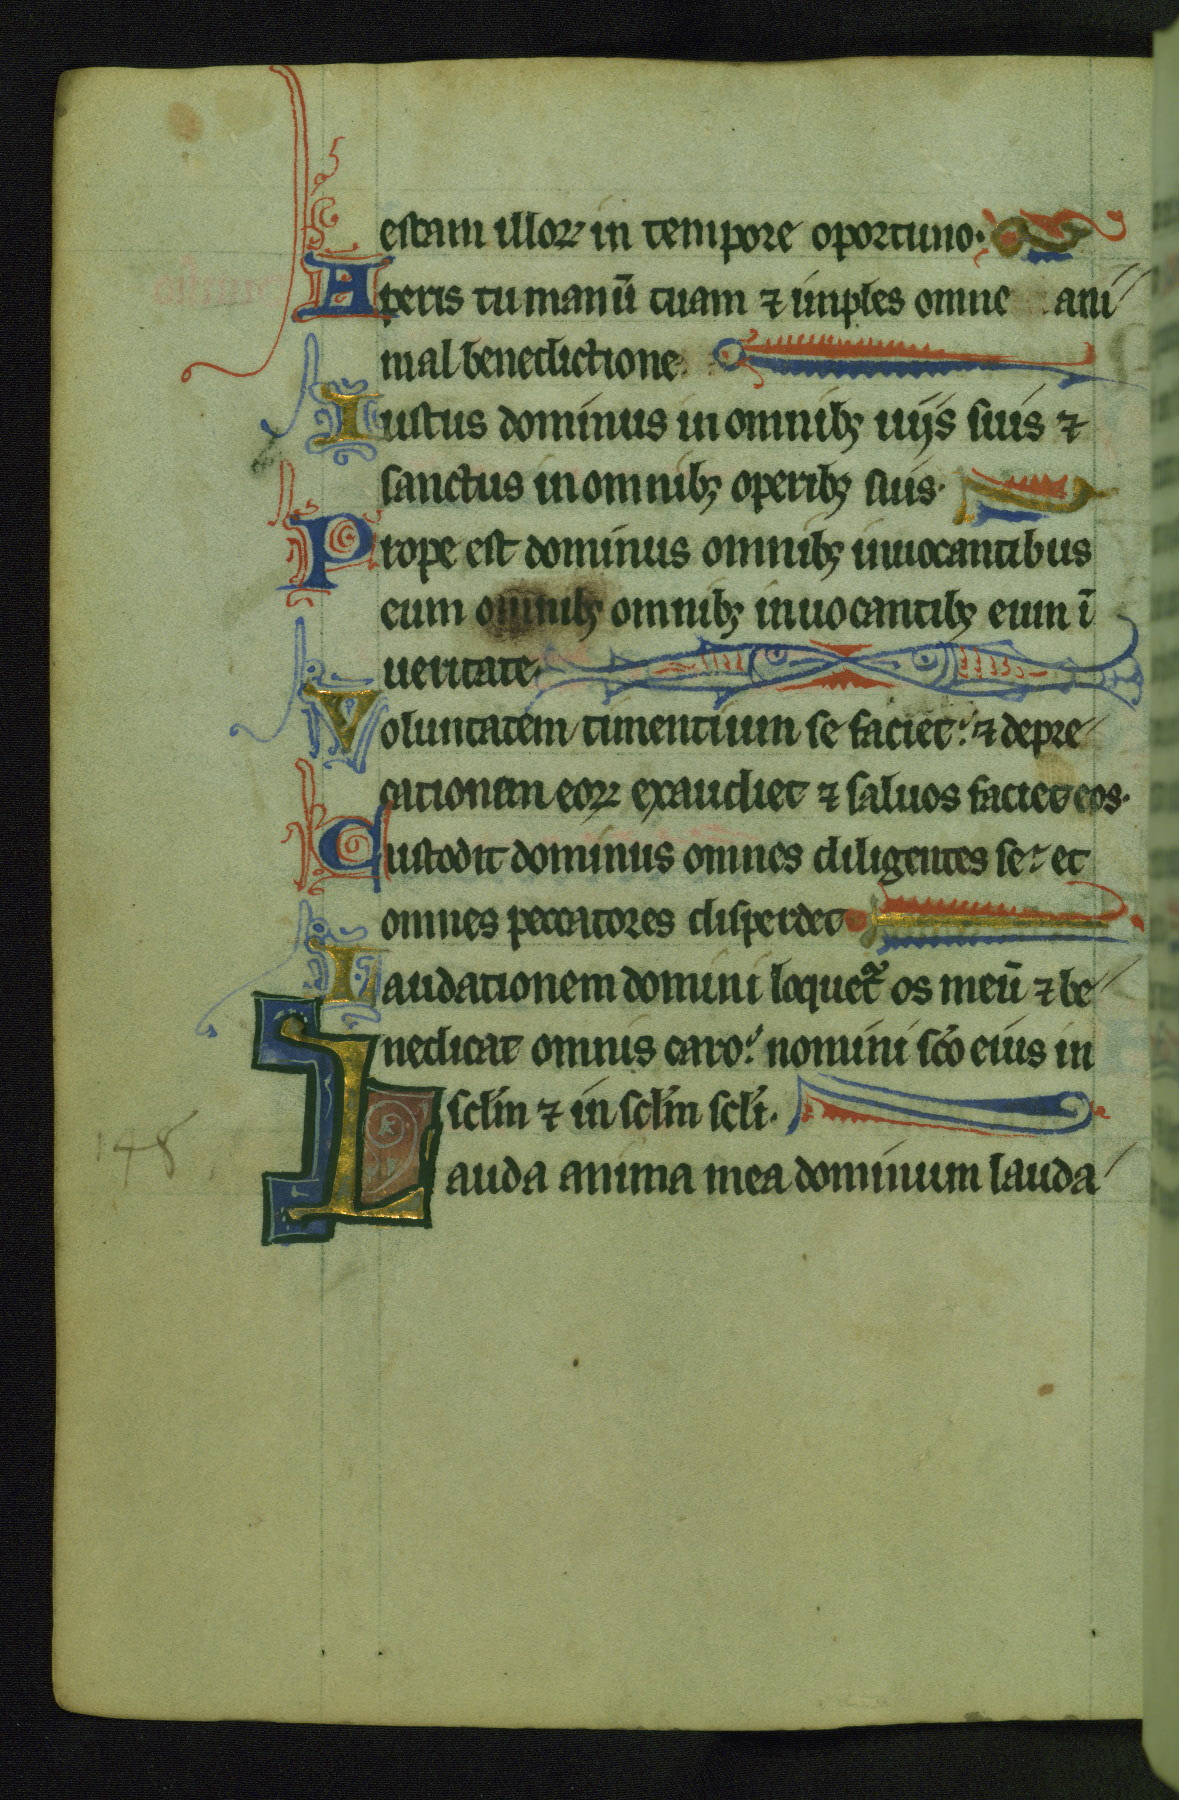 escam illoꝝ in tempore oportuno.
Aperis tu manū tuam ⁊ imples omne ani
mal benedictione.
Iustus dominus in omnibꝫ uijs suis ⁊
sanctus in omnibꝫ operibꝫ suis.
Prope est dominus omnibꝫ inuocantibus
eum omnibꝫ omnibꝫ inuocantibꝫ eum ī
ueritate.
Voluntatem timentium se faciet: ⁊ depre
cationem eoꝝ exaudiet ⁊ saluos faciet eos.
Custodit dominus omnes diligentes se: et
omnes peccatores disperdet
Laudationem domini loquet᷑ os meū ⁊ be
nedicat omnis caro: nomini sc̄o eius in
sclm̄ ⁊ in sclm̄ scli̅.
148
Lauda anima mea dominum lauda